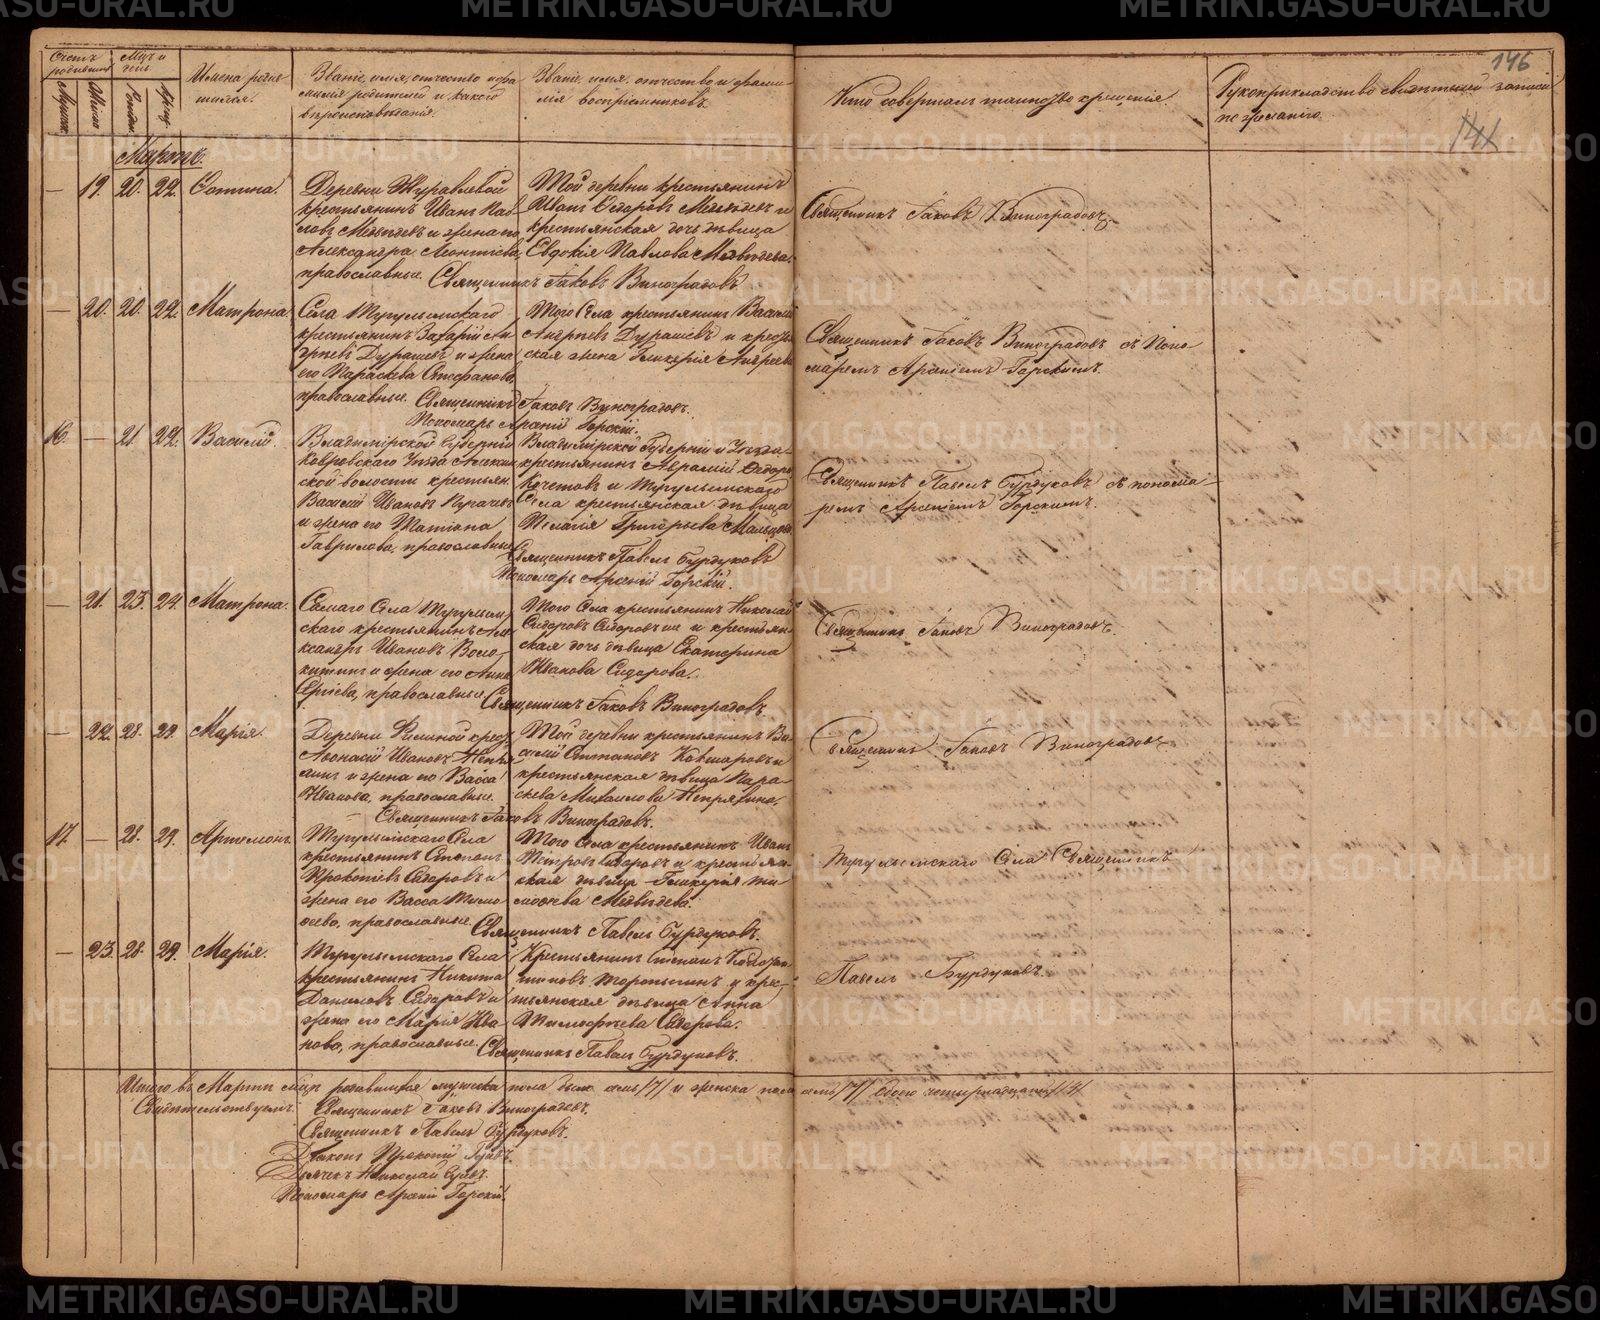 METRIKI.GASO-URAL.RU
146
Счетъ родившихся
Мужска
Женска
Мѣсяцъ и день
Рожден.
Крещ.
Имена родив-
шихся.
Званіе, имя, отчество и фа-
милія родителей и какого
вѣроисповѣданія.
Званіе, имя, отчество и фами-
лія воспріемниковъ.
Кто совершалъ таинство крещенія.
Рукоприкладство свидѣтелей записи
по желанію.
141
Мартъ.
— 19. 20. 22.
Деревни Журавлевой
крестьянинъ Иванъ Пав-
ловъ Медвѣдевъ и жена его
Александра Леонтіева,
православные.
Той деревни крестьянинъ
Иванъ Ѳедоровъ Медвѣдевъ и
крестьянская дочь дѣвица
Евдокія Павлова Медвѣдева.
Священникъ Іаковъ Виноградовъ
Священникъ Іаковъ Виноградовъ.
— 20. 20. 22. Матрона.
Села Тугулымскаго
крестьянинъ Захарій Ан-
дреевъ Дурашевъ и жена
его Параскева Стефанова,
православные.
Того Села крестьянинъ Василій
Андреевъ Дурашевъ и кресть
ская жена Гликерія Андреева
Священникъ Іаковъ Виноградовъ.
Пономарь Арсеній Горскій.
Священникъ Іаковъ Виноградовъ съ Поно-
маремъ Арсеніемъ Горскимъ.
16. — 21 22. Василій.
Владимірской Губерніи
Ковровскаго Уѣзда
ской волости крестьян.
Василій Ивановъ
и жена его Татіана
Гаврилова, православные
Владимірской Губерніи и Уѣзда
крестьянинъ Аврамій Ѳедоро
Кочетовъ и Тугулымскаго
Села крестьянская дѣвица
Пелагія Григорьева Мальцева
Священникъ Павелъ Бурдуковъ
Пономарь Арсеній Горскій.
Священникъ Павелъ Бурдуковъ съ понома-
ремъ Арсеніемъ Горскимъ.
— 21. 23. 24. Матрона.
Самаго Села Тугулым-
скаго крестьянинъ Але-
ксандръ Ивановъ Воло-
китинъ и жена его Анна
Сергіева, православные.
Того Села крестьянинъ Николай
Сидоровъ Сидоровъ же и крестьян-
ская дочь дѣвица Екатерина
Иванова Сидорова.
Священникъ Іаковъ Виноградовъ.
Священникъ Іаковъ Виноградовъ.
— 22. 28. 29. Марія.
Деревни Филиной крест
Аѳонасій Ивановъ Непря
хинъ и жена его Васса
Иванова, православные.
Той деревни крестьянинъ Ва-
силій Степановъ Кокшаровъ и
крестьянская дѣвица Пара-
скева Михаилова Непряхина.
Священникъ Іаковъ Виноградовъ.
Священникъ Іаковъ Виноградовъ
17. — 28. 29. Артемонъ.
Тугулымскаго Села
крестьянинъ Степанъ
Прокопіевъ Сидоровъ и
жена его Васса Тимо
ѳеева, православные.
Того Села крестьянинъ Иванъ
Петровъ Сидоровъ и крестьян-
ская дѣвица Гликерія Ти
моѳеева Медвѣдева.
Священникъ Павелъ Бурдуковъ.
Тугулымскаго Села Священникъ
— 23. 28. 29. Марія.
Тугулымскаго Села
крестьянинъ Никита
Даниловъ Сидоровъ и
жена его Марія Ива-
нова, православные.
Крестьянинъ Степанъ
и крес-
тьянская дѣвица Анна
Тимофѣева Сидорова.
Священникъ Павелъ Бурдуковъ.
Павелъ Бурдуковъ.
Итого въ Мартѣ мѣсяцѣ родившихся мужеска пола было семь /7/ и женска пола семь /7/ обоего четырнадцать /14/
Свидѣтельствуемъ: Священникъ Іаковъ Виноградовъ.
Священникъ Павелъ Бурдуковъ.
Діаконъ Прокопій
Дьячекъ Николай
Пономарь Арсеній Горскій.